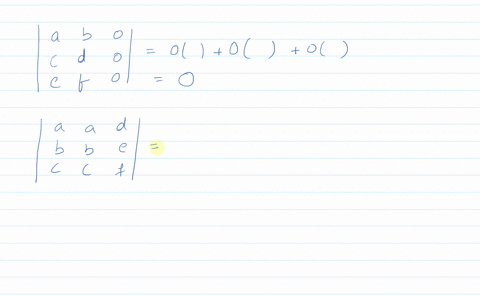 | a b 0 |
| c d 0 | = 0( ) + 0( ) + 0( )
| e f 0 | = 0
| a a d |
| b b e | =
| c c f |